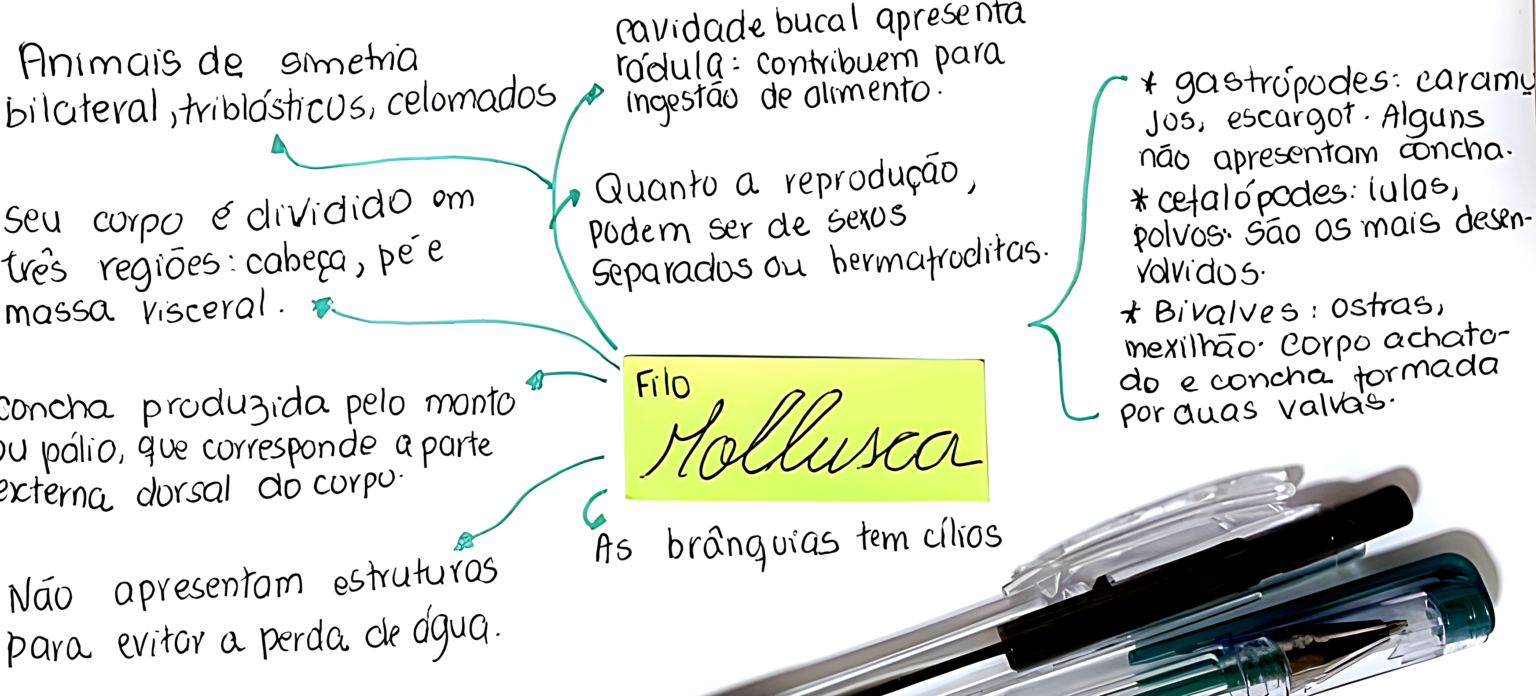 Animais de simetria
bilateral, triblásticos, celomados
seu corpo é dividido em
três regiões: cabeça, pé e
massa visceral.
concha produzida pelo manto
ou pálio, que corresponde a parte
externa dorsal do corpo.
Não apresentam estruturas
para evitar a perda de água.
cavidade bucal apresenta
rádula: contribuem para
ingestão de alimento.
Quanto a reprodução,
podem ser de sexos
separados ou hermafroditas.
Filo
Mollusca
As brânquias tem cílios
* gastrópodes: caramu
jos, escargot. Alguns
não apresentam concha.
* cefalópodes: lulas,
polvos. São os mais desen-
volvidos.
* Bivalves: ostras,
mexilhão. Corpo achata-
do e concha formada
por duas valvas.